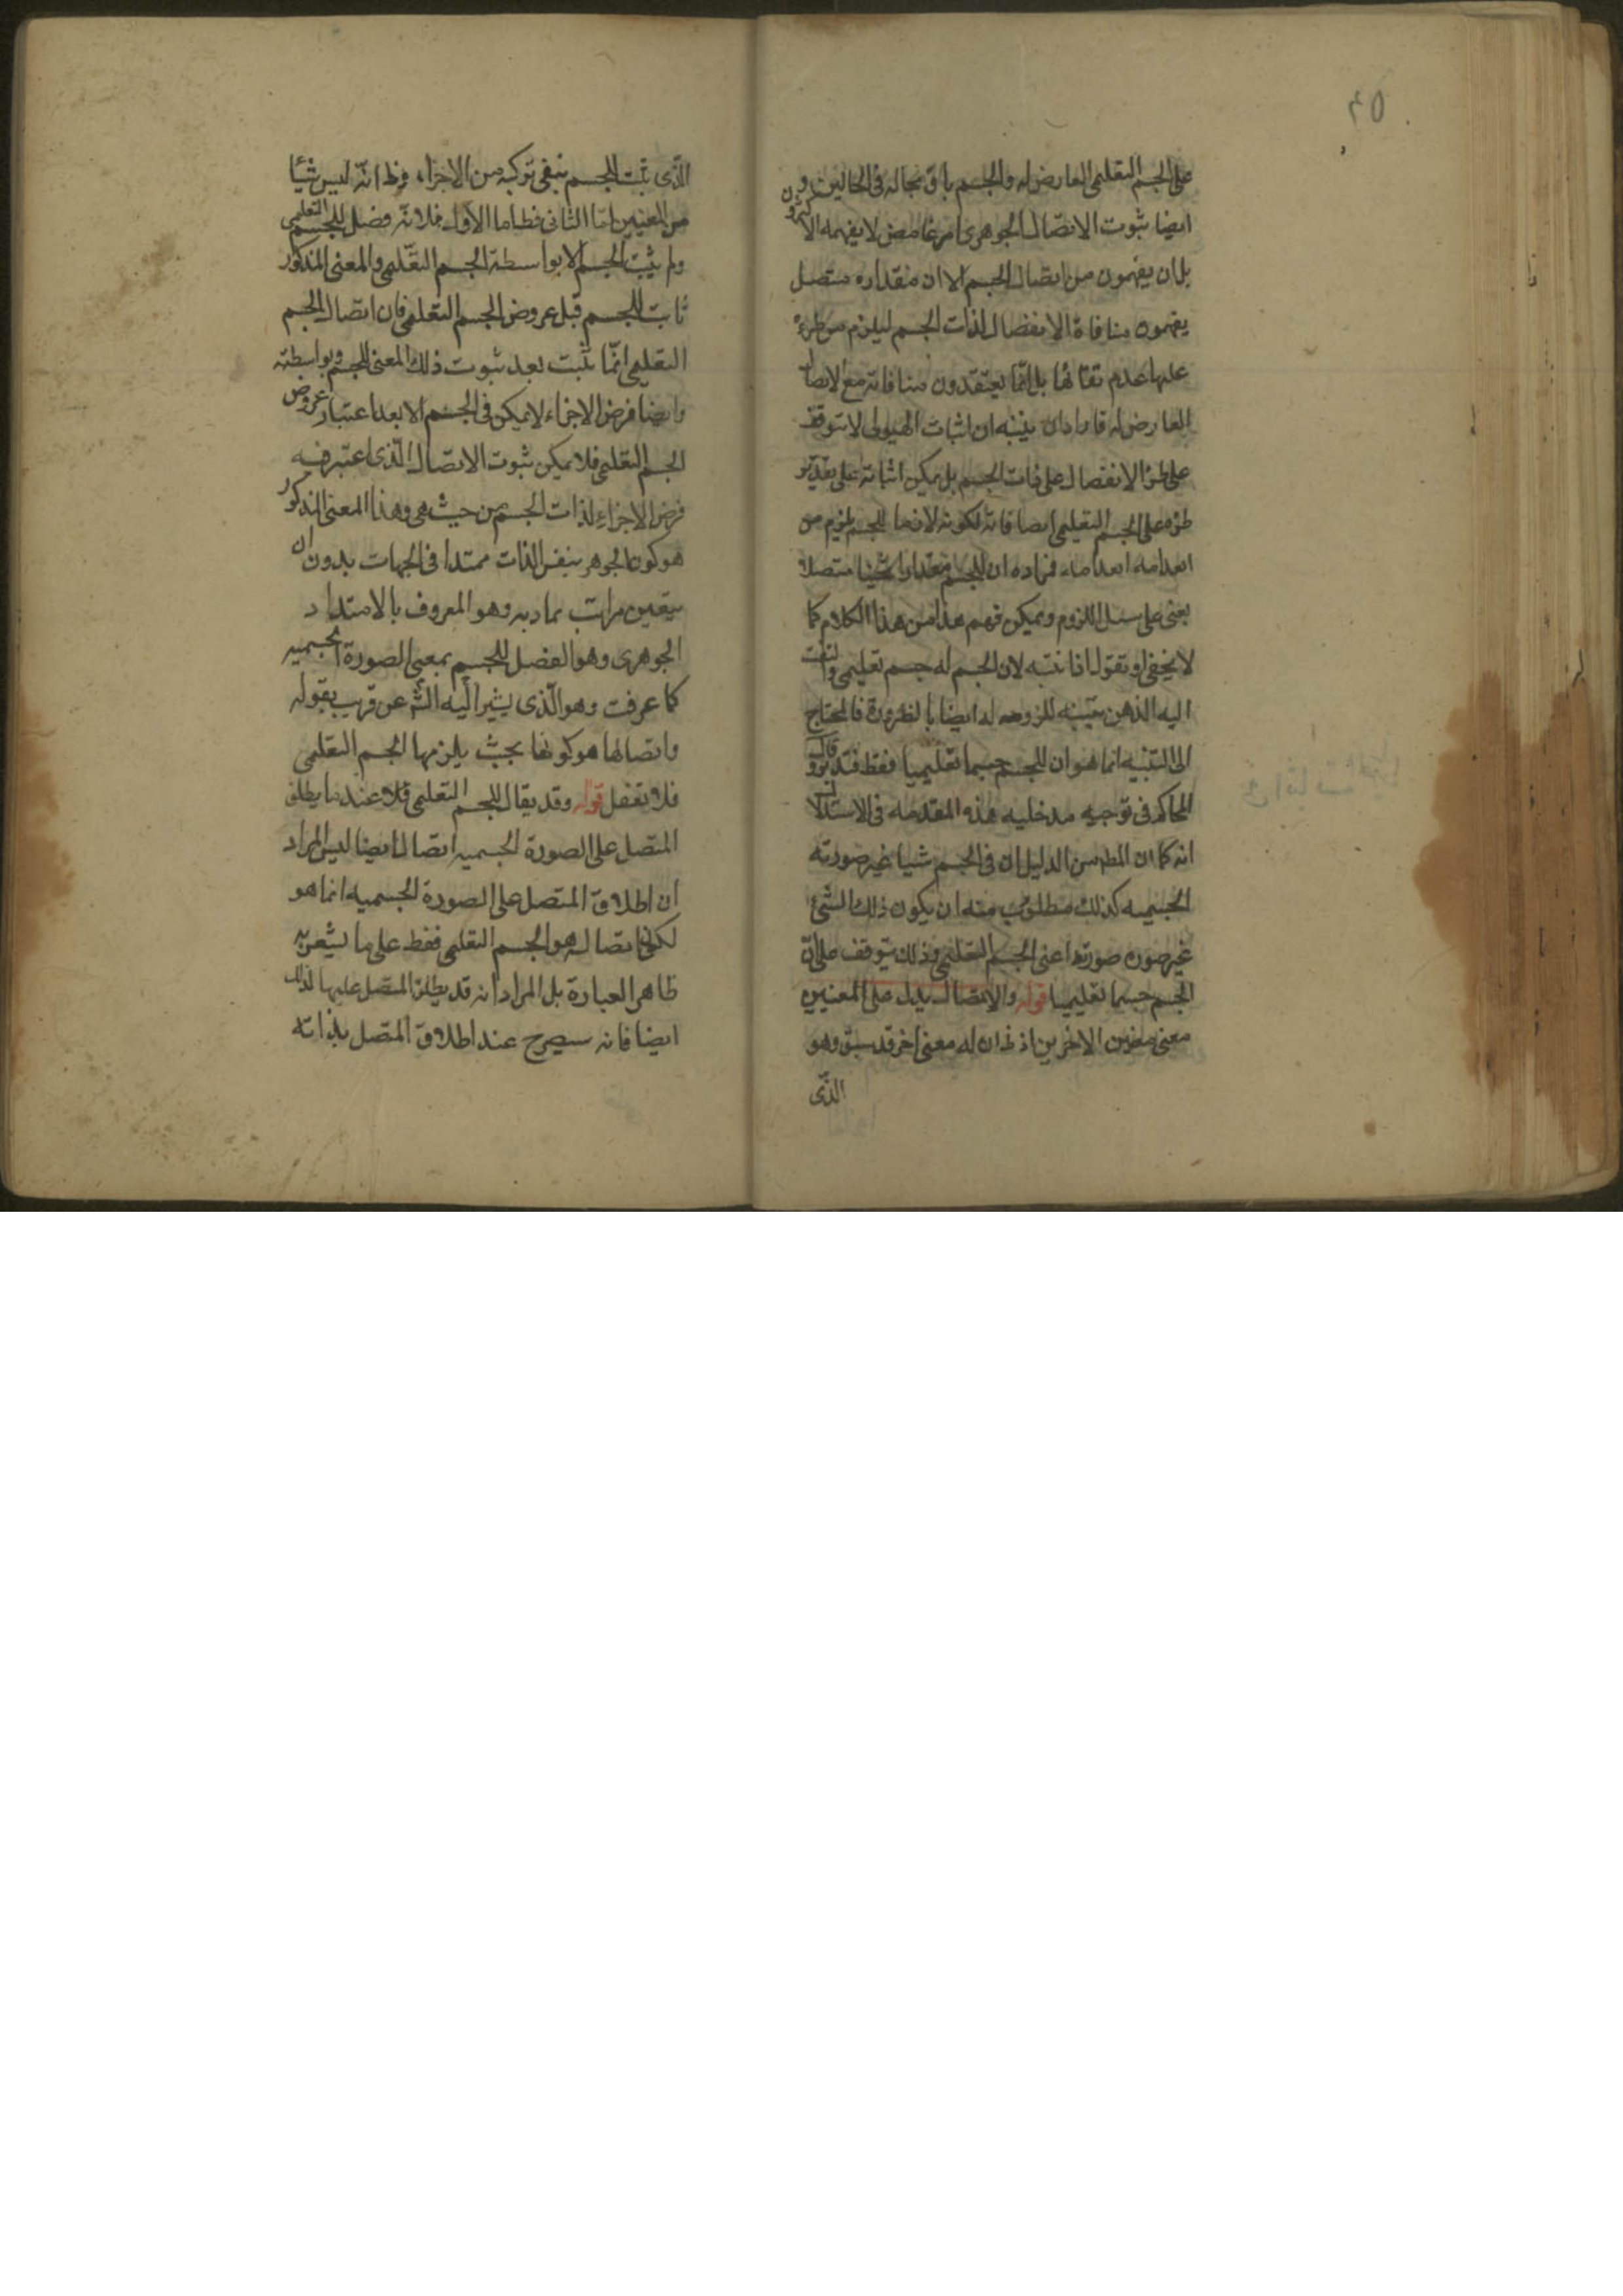 ٥٢
على الجسم التعليمى العارض له والجسم باق بحاله فى الحالين و
ايضا ثبوت الاتصال الجوهرى امر غامض لا يفهمه الاكثرون
بل ان يفهمون من اتصال الجسم الا ان مقداره متصل
يفهمون منافاة الانفصال لذات الجسم ليلزم من طرء
عليها عدم بقائها بل انما يعتقدون منافاته مع الاتصال
العارض له فاراد ان ينبه ان اثبات الهيولى لا يتوقف
على طرء الانفصال على ذات الجسم بل يمكن اثباته على تقدير
طرءه على الجسم التعليمى ايضا فانه لكونه لازما للجسم يلزم من
انعدامه انعدامه فمراده ان للجسم مقدارا ثخينا متصلا
يعنى على سبيل اللزوم ويمكن فهم هذا من هذا الكلام كما
لا يخفى او تقول اذا نبه لان الجسم له جسم تعليمى والتفت
اليه الذهن يتنبه للزومه له ايضا بالضرورة فالمحتاج
الى التنبيه انما هو ان للجسم جسما تعليميا فقط فتدبر وقال
المحاكم فى توجيه مدخليه هذه المقدمه فى الاستدلال
انه كما ان المط من الدليل ان فى الجسم شيا غير صورته
الجسميه كذلك مطلوب منه ان يكون ذلك الشئ
غير صورة صورته اعنى الجسم التعليمى وذلك يتوقف على ان
للجسم جسما تعليميا قوله والاتصال يدل على المعنيين
معنى معنيين الاخرين اذ ان له معنى اخر قد سبق وهو
الذى
الذى يثبت للجسم بنفى تركبه من الاجزاء وظ انه ليس شيئا
من المعنيين اما الثانى فظ اما الاول فلانه فصل للجسم التعليمى
ولم يثبت الجسم الا بواسطة الجسم التعليمى والمعنى المذكور
ثابت للجسم قبل عروض الجسم التعليمى فان اتصال الجسم
التعليمى انما يثبت بعد ثبوت ذلك المعنى للجسم وبواسطته
وايضا فرض الاجزاء لا يمكن فى الجسم الا بعد اعتبار عروض
الجسم التعليمى فلا يمكن ثبوت الاتصال الذى اعتبر فيه
فرض الاجزاء لذات الجسم من حيث هى وهذا المعنى المذكور
هو كون الجوهر بنفس الذات ممتدا فى الجهات بدون ان
يتعين مراتب تماديه وهو المعروف بالامتداد
الجوهرى وهو الفصل للجسم بمعنى الصورة الجسميه
كما عرفت وهو الذى يشير اليه الش عن قريب بقوله
واتصالها هو كونها بحيث يلزمها الجسم التعليمى
فلا تغفل قوله وقد يقال للجسم التعليمى فلا عند ما يطلق
المتصل على الصورة الجسميه اتصال ايضا ليس المراد
ان اطلاق المتصل على الصورة الجسميه انما هو
لكون اتصاله هو الجسم التعليمى فقط على ما يشعر به
ظاهر العبارة بل المراد انه قد يطلق المتصل عليها لذلك
ايضا فانه سيصرح عند اطلاق المتصل بذاته